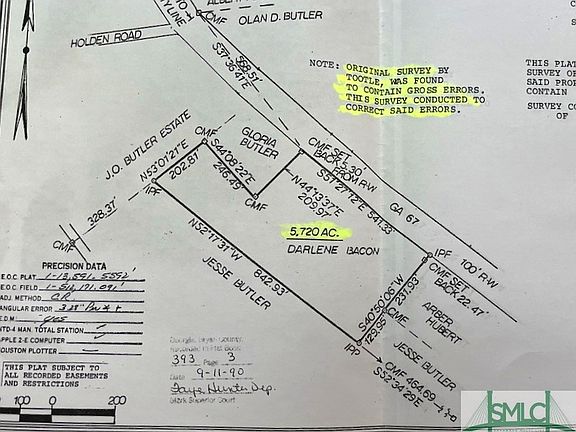 OLAN D. BUTLER
CMF
HOLDEN ROAD
S37°35'41"E
NOTE: ORIGINAL SURVEY BY
TOOTLE, WAS FOUND
TO CONTAIN GROSS ERRORS.
THIS SURVEY CONDUCTED TO
CORRECT SAID ERRORS.
THIS PLAT
SURVEY OF
SAID PROP
CONTAIN
SURVEY CO
OF
J.O. BUTLER ESTATE
CMF
GLORIA
BUTLER
CMF SET
BACK 5.30'
FROM R/W
N53°01'21"E
202.87
S44°08'22"E
246.49
CMF
N44°13'37"E
209.97
S51°27'12"E 541.33'
GA 67
100' R/W
328.37'
CMF
IPF
5.720 AC.
DARLENE BACON
IPF
CMF SET
BACK 22.47'
N52°17'31"W 842.93'
JESSE BUTLER
S40°50'06"W
237.93'
CMF
129.95'
ARBER
HUBERT
JESSE BUTLER
IPP
CMF 464.69'
S52°34'29"E
PRECISION DATA
E.O.C. PLAT
E.O.C. FIELD
ADJ. METHOD C.R.
ANGULAR ERROR
E.D.M. YES
NTD-4 MAN. TOTAL STATION
APPLE 2-E COMPUTER
HOUSTON PLOTTER
THIS PLAT SUBJECT TO
ALL RECORDED EASEMENTS
AND RESTRICTIONS
100 0 200
393 Page 3
Date 9-11-90
Clerk Superior Court
SMLC